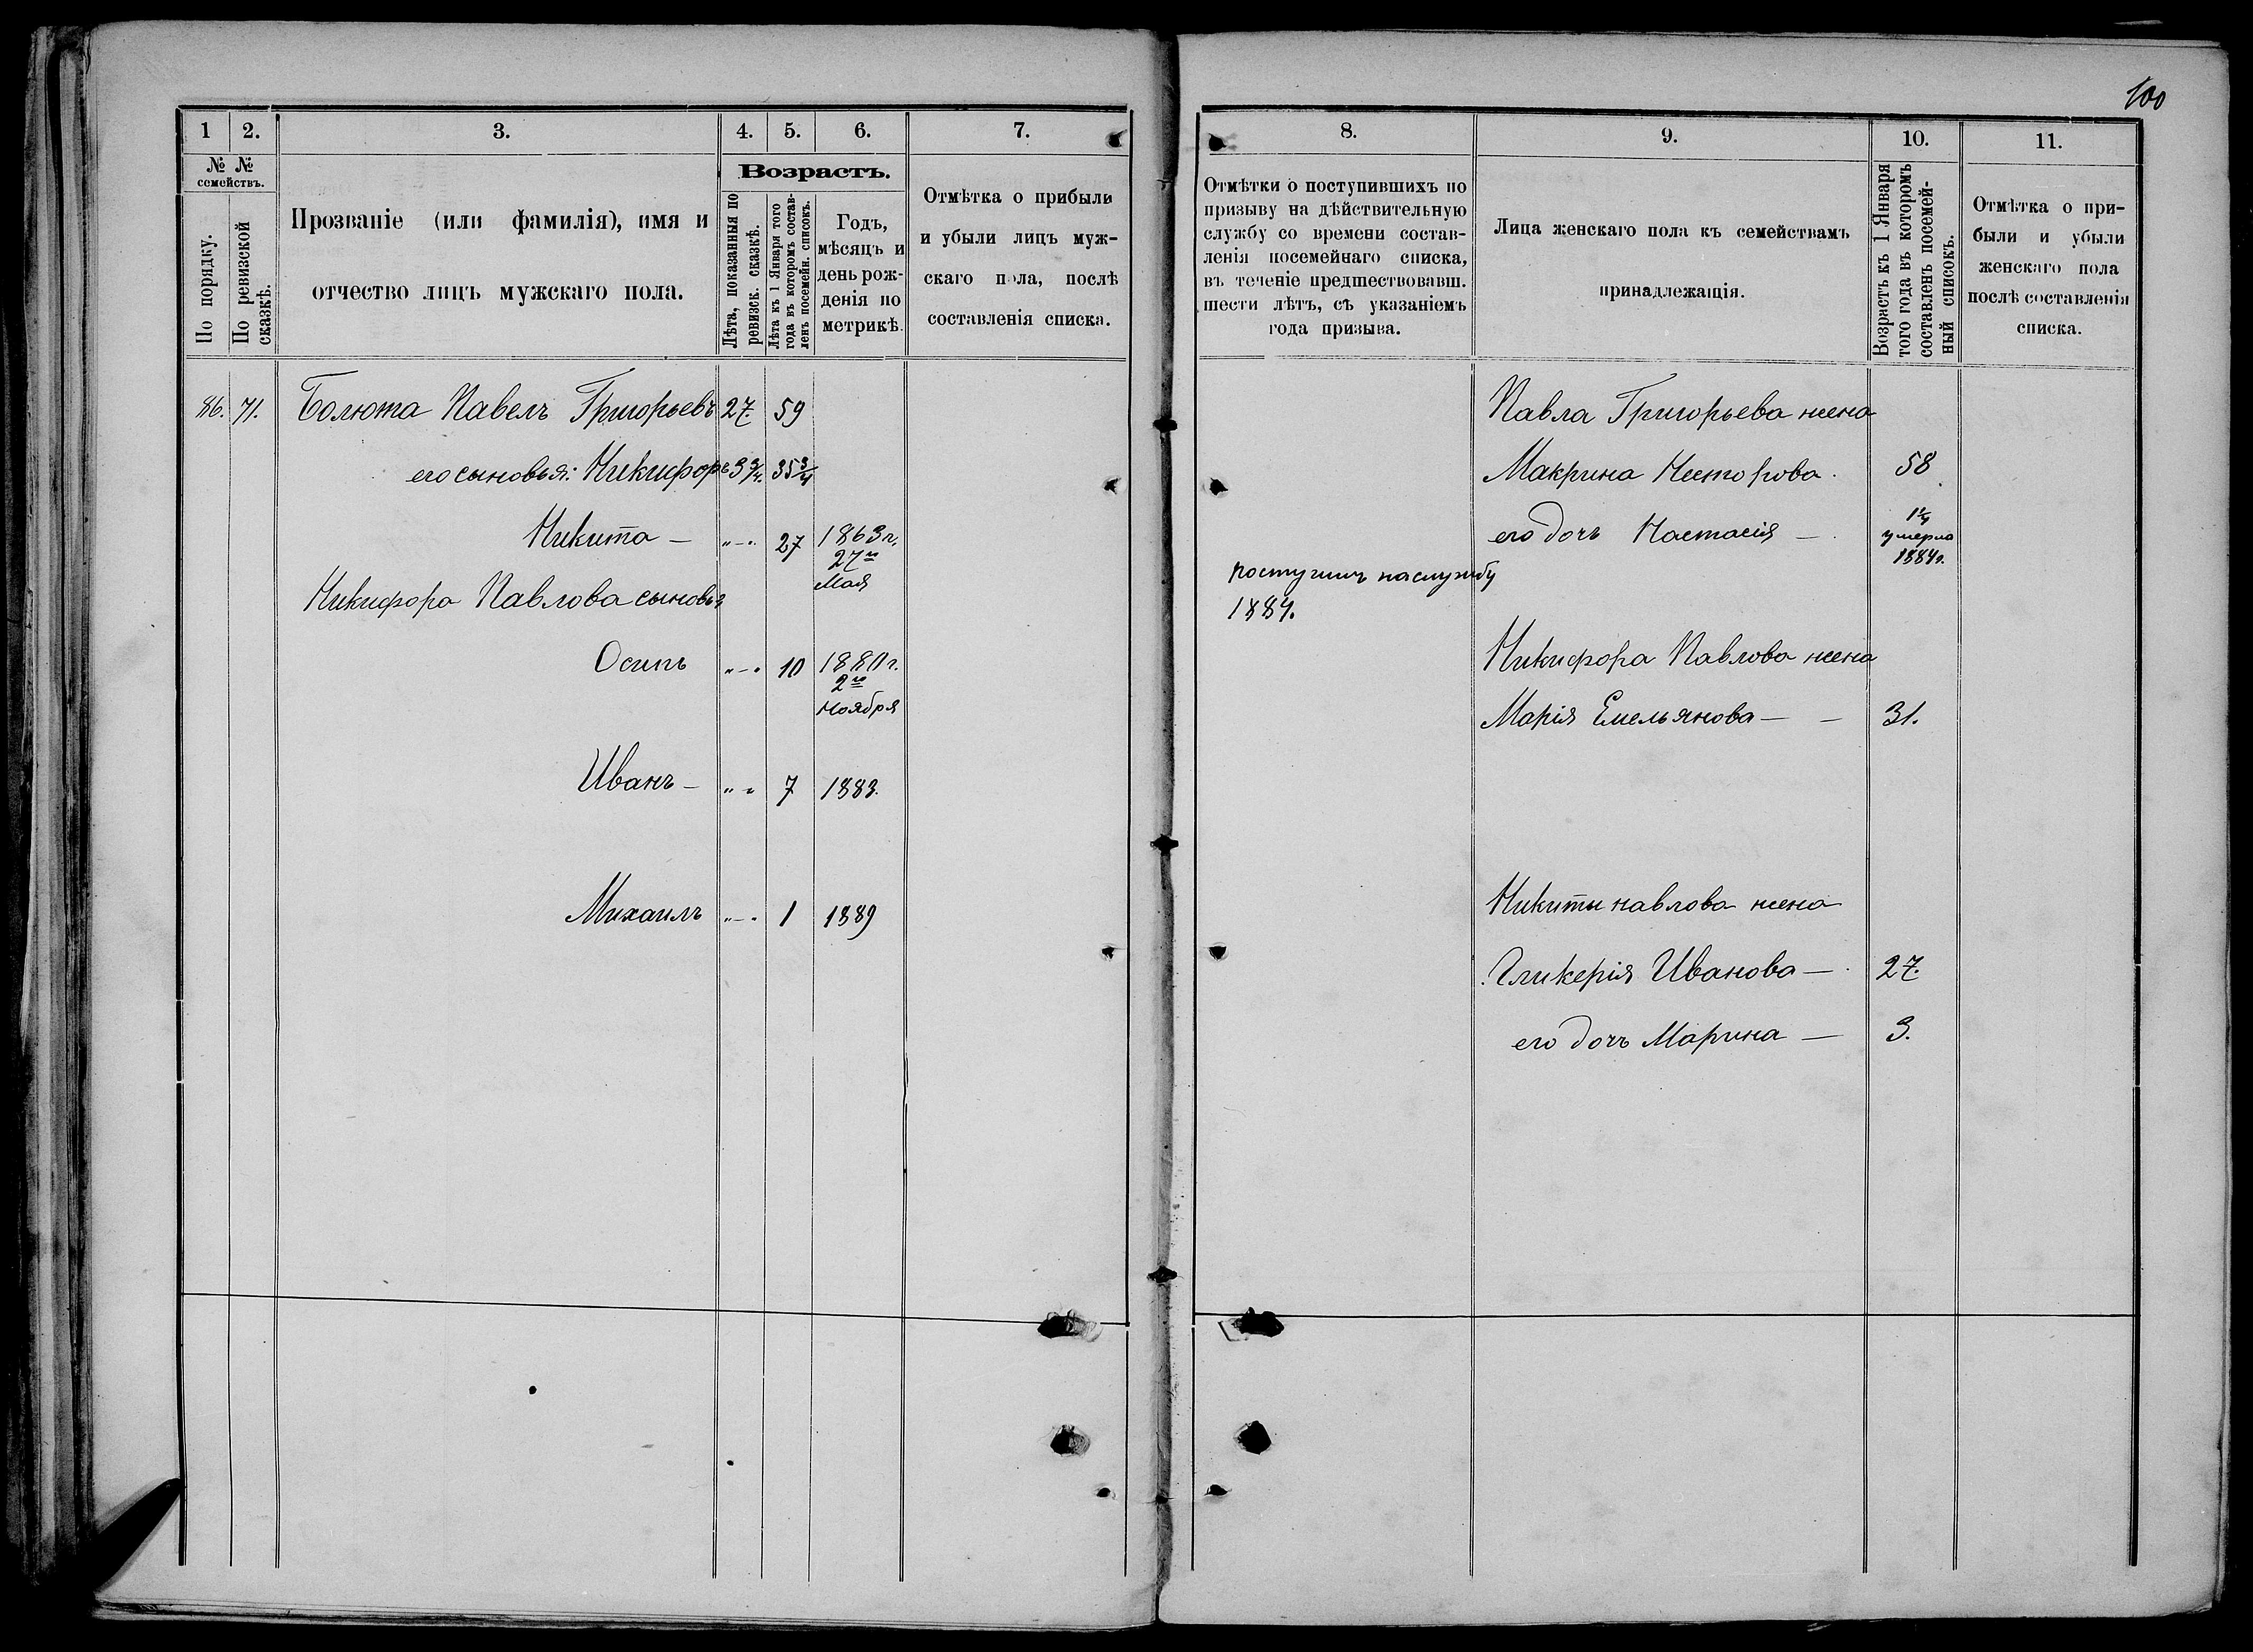 100
1
2.
3.
4.
5.
6.
7.
№ №
семействъ.
По порядку.
По ревизской
сказкѣ.
Прозваніе (или фамилія), имя и
отчество лицъ мужскаго пола.
Возрастъ.
Лѣта, показанныя по
ревизск. сказкѣ.
Лѣта къ 1 Января того
года въ которомъ состав-
ленъ посемейн. списокъ.
Годъ,
мѣсяцъ и
день рож-
денія по
метрикѣ.
Отмѣтка о прибыли
и убыли лицъ муж-
скаго пола, послѣ
составленія списка.
86. 71. Болюта Павелъ Григорьевъ 27. 59
его сыновья: Никифоръ 3 3/4. 35 3/4
Никита — „—„ 27 1863 г.
27го
Мая
Никифора Павлова сыновья
Осипъ „—„ 10 1880 г.
2го
Ноября
Иванъ — „ „ 7 1883.
Михаилъ „—„ 1 1889
8.
9.
10.
11.
Отмѣтки о поступившихъ по
призыву на дѣйствительную
службу со времени состав-
ленія посемейнаго списка,
въ теченіе предшествовавш.
шести лѣтъ, съ указаніемъ
года призыва.
Лица женскаго пола къ семействамъ
принадлежащія.
Возрастъ къ 1 Января
того года въ которомъ
составленъ посемей-
ный списокъ.
Отмѣтка о при-
были и убыли
женскаго пола
послѣ составленія
списка.
Павла Григорьева жена
Макрина Несторова. 58
его дочь Настасія —
умерла
1884 г.
поступилъ на службу
1884.
Никифора Павлова жена
Марія Емельянова — — 31.
Никиты павлова жена
Гликерія Иванова — 27.
его дочь Марина — 3.